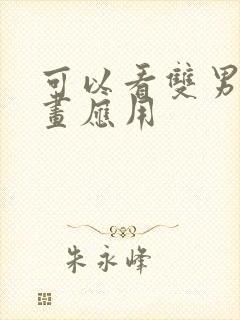 可以看雙男
畫應用
朱永峰